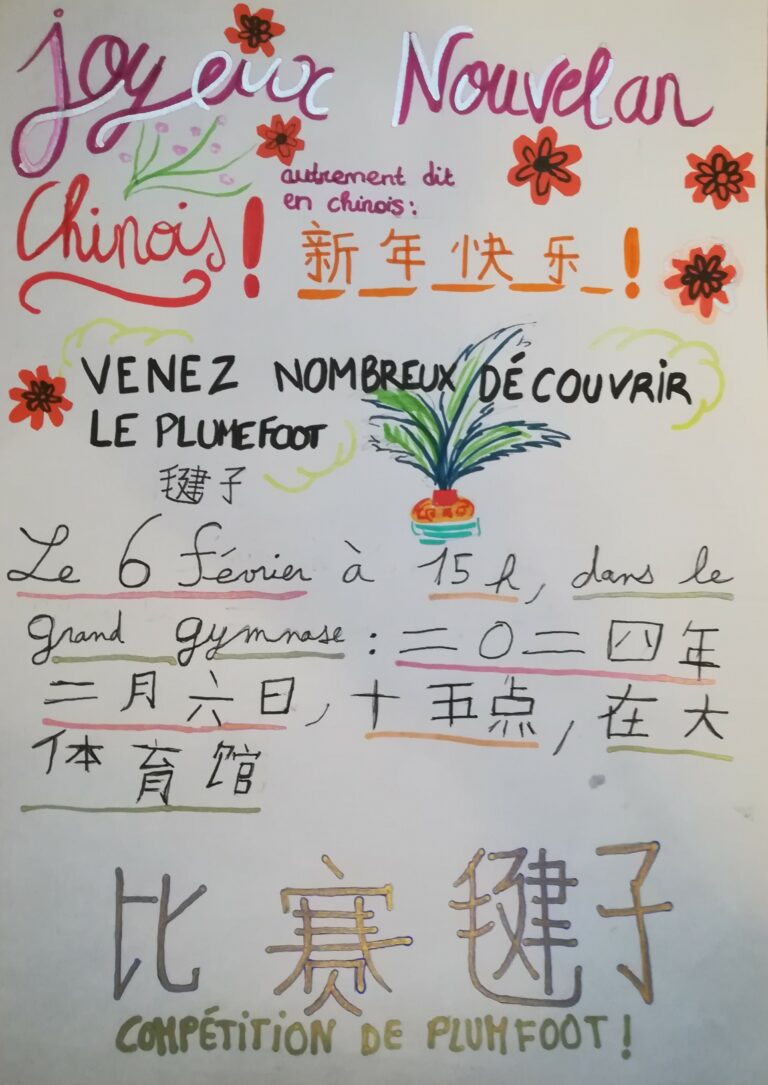 Joyeux Nouvel an
Chinois !
autrement dit
en chinois :
新年快乐!
VENEZ NOMBREUX DÉCOUVRIR
LE PLUMEFOOT
毽子
Le 6 février à 15h, dans le
grand gymnase : 二〇二四年
二月六日, 十五点, 在大
体育馆
比赛毽子
COMPÉTITION DE PLUMFOOT !